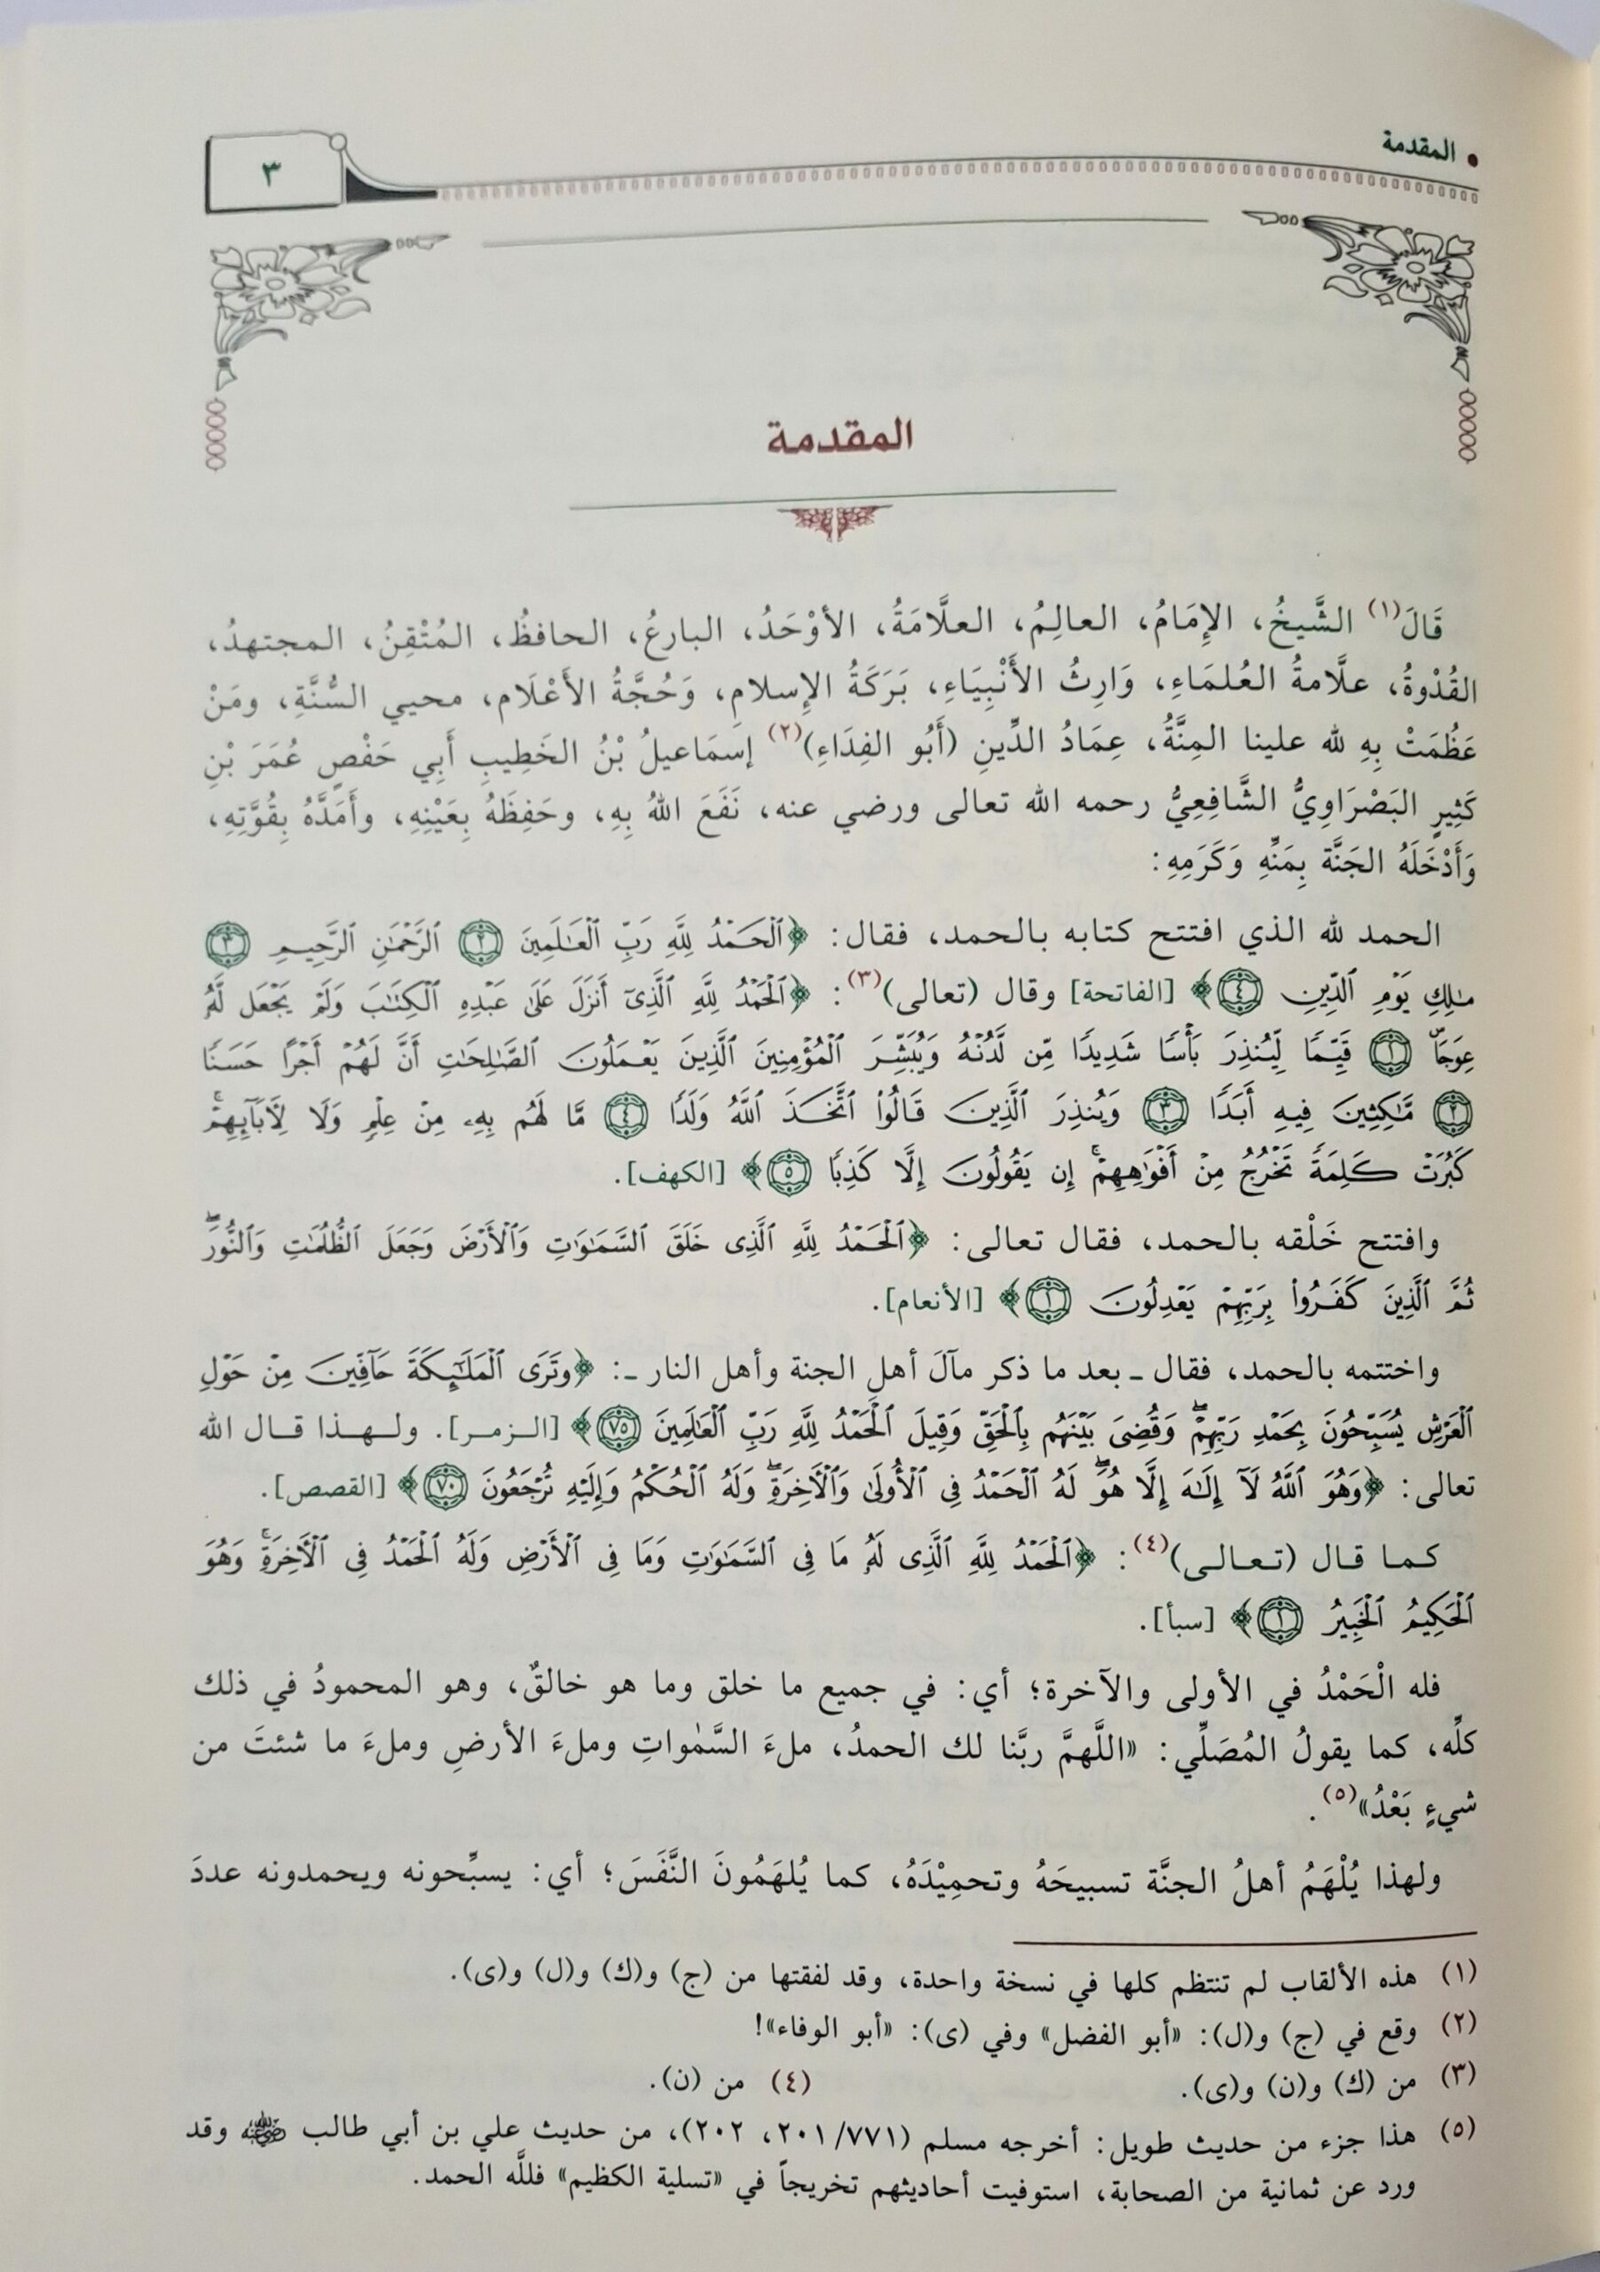 • المقدمة
٣
المقدمة
قَالَ(١) الشَّيخُ، الإِمَامُ، العالِمُ، العلَّامَةُ، الأوْحَدُ، البارعُ، الحافظُ، المُتْقِنُ، المجتهدُ،
القُدْوةُ، علَّامةُ العُلمَاءِ، وَارِثُ الأَنْبِيَاءِ، بَرَكَةُ الإِسلام، وَحُجَّةُ الأَعْلَام، محيي السُّنَّةِ، ومَنْ
عَظُمَتْ بِهِ لله علينا المِنَّةُ، عِمَادُ الدِّينِ (أَبُو الفِدَاءِ)(٢) إِسمَاعيلُ بْنُ الخَطِيبِ أَبِي حَفْصٍ عُمَرَ بْنِ
كَثِيرٍ البَصْرَاوِيُّ الشَّافِعِيُّ رحمه الله تعالى ورضي عنه، نَفَعَ اللهُ بِهِ، وحَفِظَهُ بِعَيْنِهِ، وأَمَدَّهُ بِقُوَّتِهِ،
وَأَدْخَلَهُ الجَنَّة بِمَنِّهِ وَكَرَمِهِ:
الحمد لله الذي افتتح كتابه بالحمد، فقال: ﴿ٱلْحَمْدُ لِلَّهِ رَبِّ ٱلْعَٰلَمِينَ ٢ ٱلرَّحْمَٰنِ ٱلرَّحِيمِ ٣
مَٰلِكِ يَوْمِ ٱلدِّينِ ٤﴾ [الفاتحة] وقال (تعالى)(٣): ﴿ٱلْحَمْدُ لِلَّهِ ٱلَّذِىٓ أَنزَلَ عَلَىٰ عَبْدِهِ ٱلْكِتَٰبَ وَلَمْ يَجْعَل لَّهُۥ
عِوَجَاۜ ١ قَيِّمًا لِّيُنذِرَ بَأْسًا شَدِيدًا مِّن لَّدُنْهُ وَيُبَشِّرَ ٱلْمُؤْمِنِينَ ٱلَّذِينَ يَعْمَلُونَ ٱلصَّٰلِحَٰتِ أَنَّ لَهُمْ أَجْرًا حَسَنًا
٢ مَّٰكِثِينَ فِيهِ أَبَدًا ٣ وَيُنذِرَ ٱلَّذِينَ قَالُوا۟ ٱتَّخَذَ ٱللَّهُ وَلَدًا ٤ مَّا لَهُم بِهِۦ مِنْ عِلْمٍ وَلَا لِءَابَآئِهِمْۚ
كَبُرَتْ كَلِمَةً تَخْرُجُ مِنْ أَفْوَٰهِهِمْۚ إِن يَقُولُونَ إِلَّا كَذِبًا ٥﴾ [الكهف].
وافتتح خَلْقه بالحمد، فقال تعالى: ﴿ٱلْحَمْدُ لِلَّهِ ٱلَّذِى خَلَقَ ٱلسَّمَٰوَٰتِ وَٱلْأَرْضَ وَجَعَلَ ٱلظُّلُمَٰتِ وَٱلنُّورَۖ
ثُمَّ ٱلَّذِينَ كَفَرُوا۟ بِرَبِّهِمْ يَعْدِلُونَ ١﴾ [الأنعام].
واختتمه بالحمد، فقال ـ بعد ما ذكر مآلَ أهلِ الجنة وأهل النار ـ: ﴿وَتَرَى ٱلْمَلَٰٓئِكَةَ حَآفِّينَ مِنْ حَوْلِ
ٱلْعَرْشِ يُسَبِّحُونَ بِحَمْدِ رَبِّهِمْۖ وَقُضِىَ بَيْنَهُم بِٱلْحَقِّ وَقِيلَ ٱلْحَمْدُ لِلَّهِ رَبِّ ٱلْعَٰلَمِينَ ٧٥﴾ [الزمر]. ولهذا قال الله
تعالى: ﴿وَهُوَ ٱللَّهُ لَآ إِلَٰهَ إِلَّا هُوَۖ لَهُ ٱلْحَمْدُ فِى ٱلْأُولَىٰ وَٱلْءَاخِرَةِۖ وَلَهُ ٱلْحُكْمُ وَإِلَيْهِ تُرْجَعُونَ ٧٠﴾ [القصص].
كما قال (تعالى)(٤): ﴿ٱلْحَمْدُ لِلَّهِ ٱلَّذِى لَهُۥ مَا فِى ٱلسَّمَٰوَٰتِ وَمَا فِى ٱلْأَرْضِ وَلَهُ ٱلْحَمْدُ فِى ٱلْءَاخِرَةِۚ وَهُوَ
ٱلْحَكِيمُ ٱلْخَبِيرُ ١﴾ [سبأ].
فله الْحَمْدُ في الأولى والآخرة؛ أي: في جميع ما خلق وما هو خالقٌ، وهو المحمودُ في ذلك
كلِّه، كما يقولُ المُصَلِّي: «اللَّهمَّ ربَّنا لك الحمدُ، ملءَ السَّمٰواتِ وملءَ الأرضِ وملءَ ما شئتَ من
شيءٍ بَعْدُ»(٥).
ولهذا يُلْهَمُ أهلُ الجنَّة تسبيحَهُ وتحمِيْدَهُ، كما يُلهَمُونَ النَّفَسَ؛ أي: يسبِّحونه ويحمدونه عددَ
(١) هذه الألقاب لم تنتظم كلها في نسخة واحدة، وقد لفقتها من (ج) و(ك) و(ل) و(ى).
(٢) وقع في (ج) و(ل): «أبو الفضل» وفي (ى): «أبو الوفاء»!
(٣) من (ك) و(ن) و(ى). (٤) من (ن).
(٥) هذا جزء من حديث طويل: أخرجه مسلم (٢٠١/٧٧١، ٢٠٢)، من حديث علي بن أبي طالب رضي الله عنه وقد
ورد عن ثمانية من الصحابة، استوفيت أحاديثهم تخريجاً في «تسلية الكظيم» فللَّه الحمد.